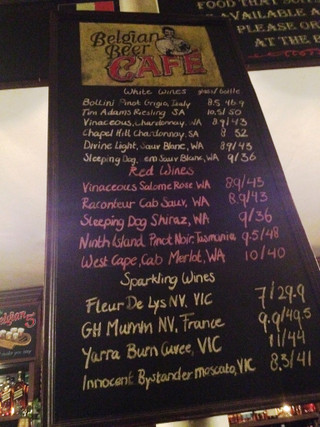 FOOD THAT
AVAILABLE A
PLEASE OR
AT THE B
Belgian
Beer
CAFE
White Wines glass/bottle
Bollini Pinot Grigio, Italy 8.5 46.9
Tim Adams Riesling SA 10.5/50
Vinaceous, Chardonnay, WA 8.9/43
Chapel Hill Chardonnay, SA 8 32
Divine Light, Sauv Blanc, WA 8.9/43
Sleeping Dog, Sauv Blanc, WA 9/36
Red Wines
Vinaceous Salome Rose, WA 8.9/43
Raconteur Cab Sauv, WA 8.9/43
Sleeping Dog Shiraz, WA 9/36
Ninth Island, Pinot Noir, Tasmania 9.5/48
West Cape, Cab Merlot, WA 10/40
Sparkling Wines
Fleur De Lys NV, VIC 7/29.9
GH Mumm NV, France 9.9/49.5
Yarra Burn Cuvee, VIC 11/44
Innocent Bystander Moscato, VIC 8.3/41